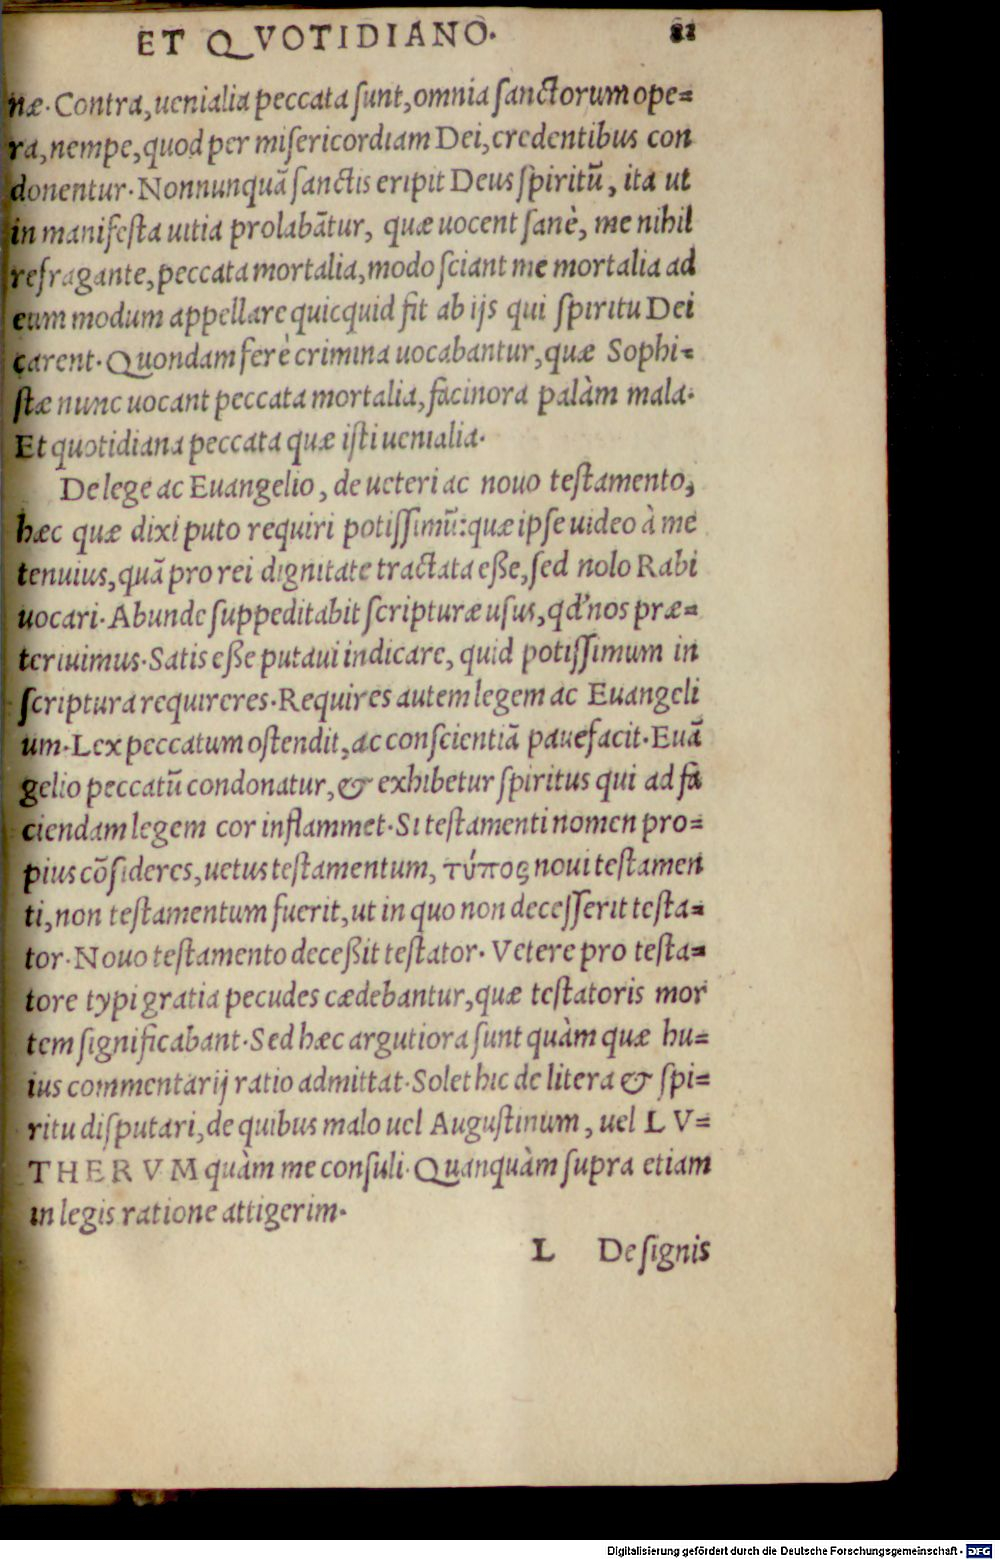 ET QVOTIDIANO. 81
næ. Contra, uenialia peccata ſunt, omnia ſanctorum ope=
ra, nempe, quod per miſericordiam Dei, credentibus con
donentur. Nonnunquā ſanctis eripit Deus ſpiritū, ita ut
in manifeſta uitia prolabātur, quæ uocent ſanè, me nihil
refragante, peccata mortalia, modo ſciant me mortalia ad
eum modum appellare quicquid fit ab ijs qui ſpiritu Dei
carent. Quondam ferè crimina uocabantur, quæ Sophi=
ſtæ nunc uocant peccata mortalia, facinora palàm mala.
Et quotidiana peccata quæ iſti uenialia.
De lege ac Euangelio, de ueteri ac nouo teſtamento,
hæc quæ dixi puto requiri potiſſimū: quæ ipſe uideo à me
tenuius, quā pro rei dignitate tractata eſſe, ſed nolo Rabi
uocari. Abunde ſuppeditabit ſcripturæ uſus, qd' nos præ=
teriuimus. Satis eſſe putaui indicare, quid potiſſimum in
ſcriptura requireres. Requires autem legem ac Euangeli
um. Lex peccatum oſtendit, ac conſcientiā pauefacit. Euā
gelio peccatū condonatur, & exhibetur ſpiritus qui ad fa
ciendam legem cor inflammet. Si teſtamenti nomen pro=
pius cōſideres, uetus teſtamentum, τύπος noui teſtamen
ti, non teſtamentum fuerit, ut in quo non deceſſerit teſta=
tor. Nouo teſtamento deceſſit teſtator. Vetere pro teſta=
tore typi gratia pecudes cædebantur, quæ teſtatoris mor
tem ſignificabant. Sed hæc argutiora ſunt quàm quæ hu=
ius commentarij ratio admittat. Solet hic de litera & ſpi=
ritu diſputari, de quibus malo uel Auguſtinum, uel LV=
THERVM quàm me conſuli. Quanquàm ſupra etiam
in legis ratione attigerim.
L De ſignis
Digitalisierung gefördert durch die Deutsche Forschungsgemeinschaft - DFG